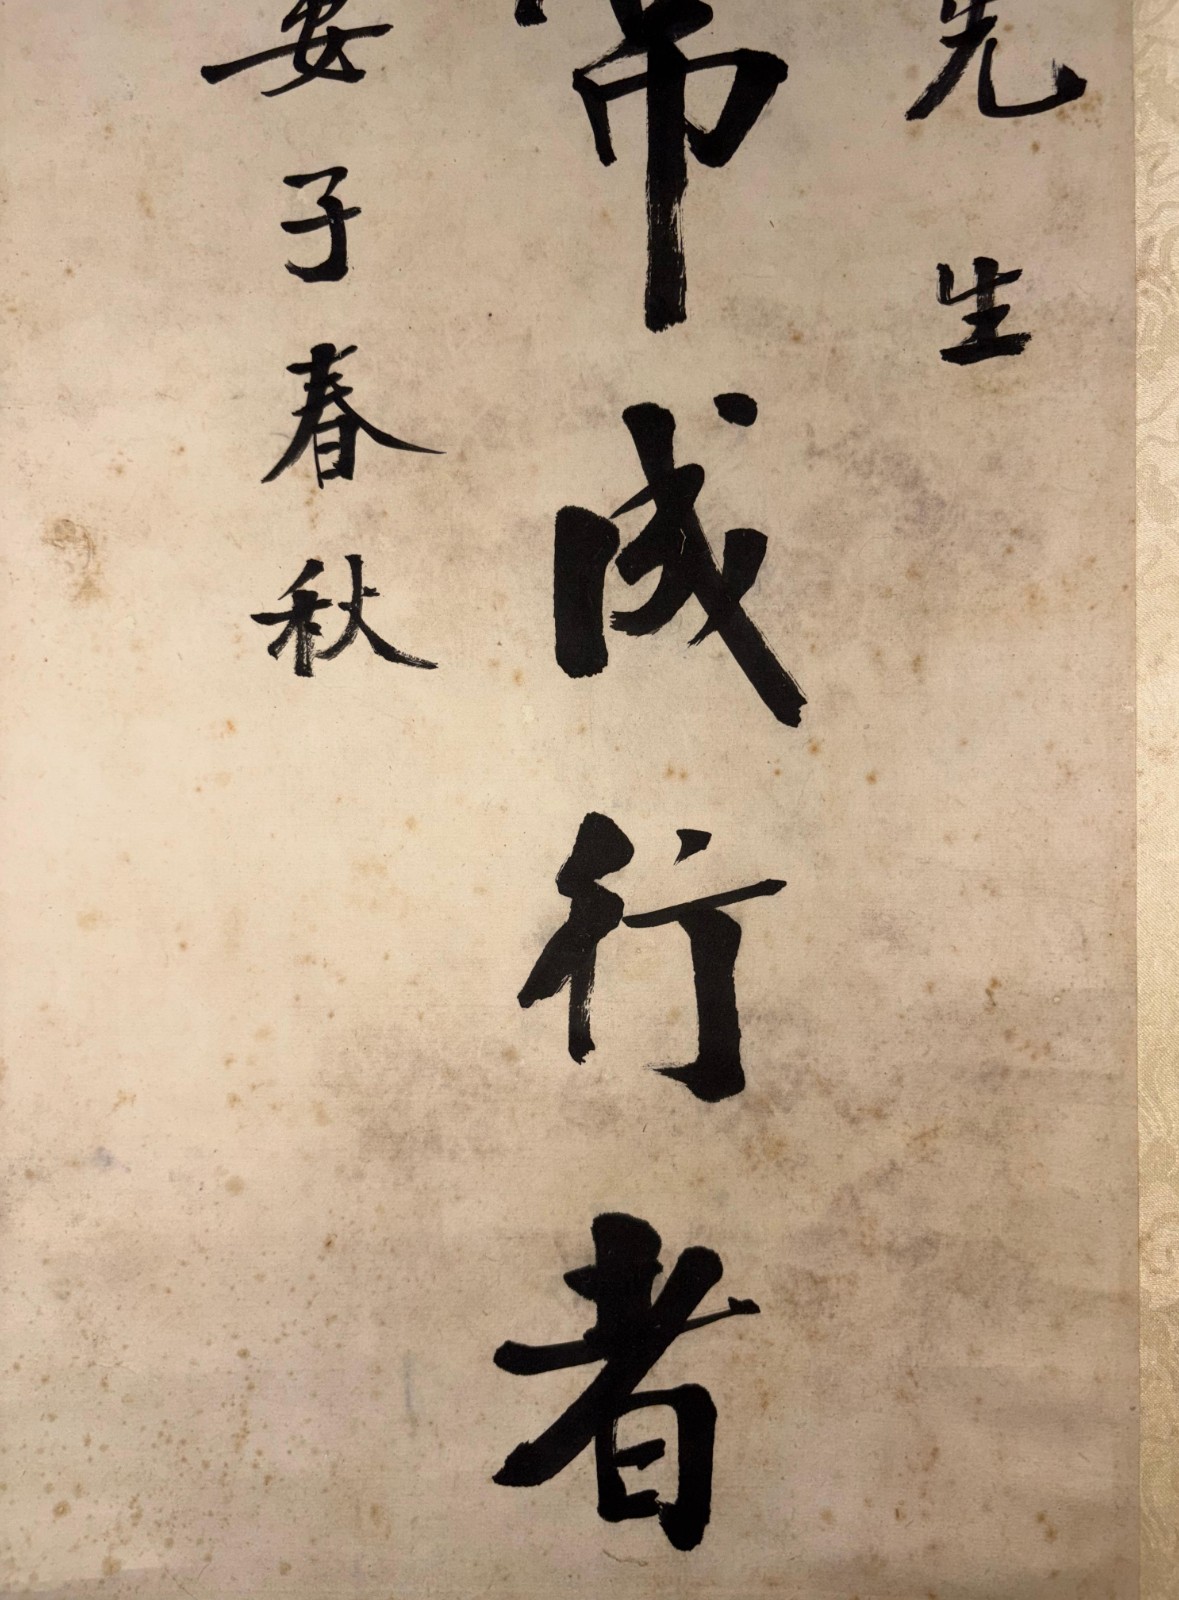 先生
常成行者
晏子春秋